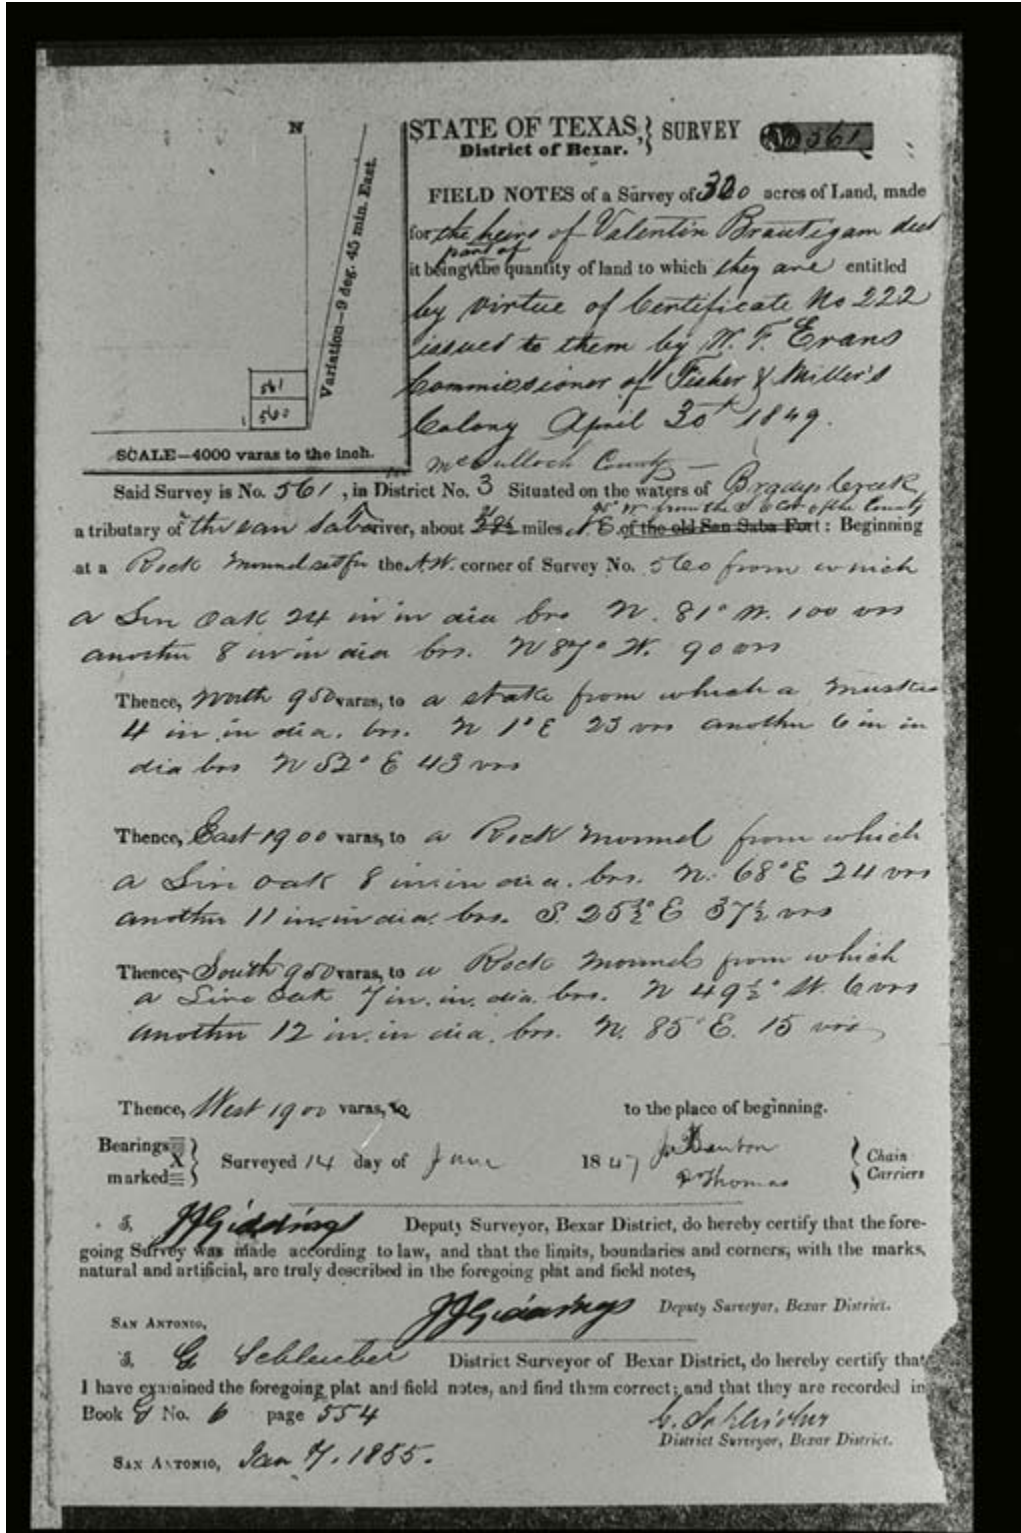 N
Variation—9 deg. 45 min. East.
561
560
SCALE—4000 varas to the inch.
STATE OF TEXAS, } SURVEY No 561
District of Bexar.
FIELD NOTES of a Survey of 320 acres of Land, made
for the heirs of Valentin Brautigam decd
part of
it being the quantity of land to which they are entitled
by virtue of Certificate No 222
issued to them by W. F. Evans
Commissioner of Fisher & Miller's
Colony April 30th 1849.
McCulloch County
Said Survey is No. 561, in District No. 3 Situated on the waters of Bradys Creek,
W from the S E Cor of the County
a tributary of the san Saba river, about miles N. E. of the old San Saba Fort: Beginning
at a Rock Mound set for the N.W. corner of Survey No. 560 from which
a Live Oak 24 in in dia brs N. 81° W. 100 vrs
another 8 in in dia brs. N 87° W. 90 vrs
Thence, North 950 varas, to a stake from which a Muskee
4 in in dia. brs. N 1° E 23 vrs another 6 in in
dia brs N 52° E 43 vrs
Thence, East 1900 varas, to a Rock Mound from which
a Live oak 8 in in dia. brs. N. 68° E 24 vrs
another 11 in in dia. brs. S. 25½° E 37½ vrs
Thence, South 950 varas, to a Rock Mound from which
a Live Oak 7 in. in. dia. brs. N 49½° W. 6 vrs
another 12 in. in dia. brs. N. 85° E. 15 vrs
Thence, West 1900 varas, to to the place of beginning.
Bearings marked X } Surveyed 14 day of June 1847 Thomas { Chain Carriers
I, JJ Giddings Deputy Surveyor, Bexar District, do hereby certify that the fore-
going Survey was made according to law, and that the limits, boundaries and corners, with the marks,
natural and artificial, are truly described in the foregoing plat and field notes,
JJ Giddings Deputy Surveyor, Bexar District.
SAN ANTONIO,
I, G Schleicher District Surveyor of Bexar District, do hereby certify that
I have examined the foregoing plat and field notes, and find them correct; and that they are recorded in
Book G No. 6 page 554
G. Schleicher
District Surveyor, Bexar District.
SAN ANTONIO, Jan 7. 1855.